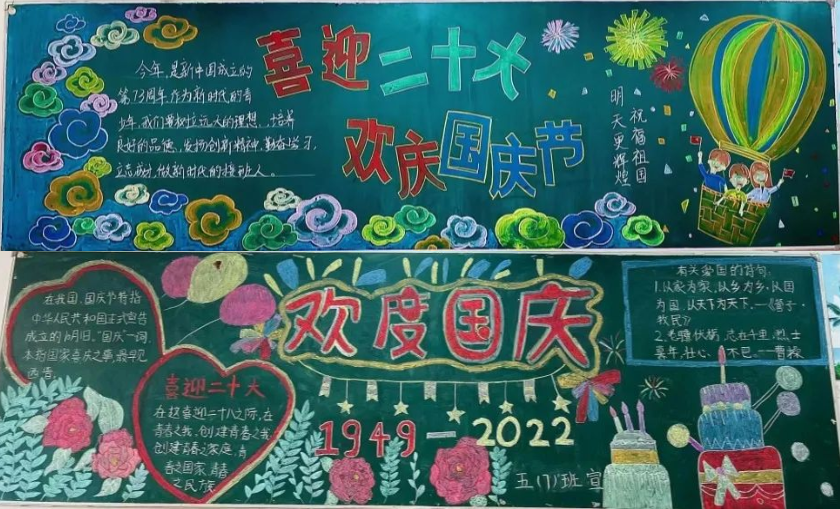 喜迎二十大
欢庆国庆节
今年,是新中国成立的
第73周年.作为新时代的青
少年,我们要树立远大的理想,培养
良好的品德,发扬创新精神,勤奋学习,
立志成才,做新时代的接班人。
祝福祖国
明天更辉煌
欢度国庆
1949—2022
在我国,国庆节特指
中华人民共和国正式宣告
成立的10月1日,"国庆"一词,
本指国家喜庆之事,最早见
西晋.
喜迎二十大
在这喜迎二十大之际,在
青春之我,创建青春之我
创建青春之家庭,青
春之国家,青春
之民族
有关爱国的诗句:
1.以家为家,以乡为乡,以国
为国,以天下为天下.—《管子·
牧民》
2.老骥伏枥,志在千里.烈士
暮年,壮心不已.——曹操
五(7)班宣